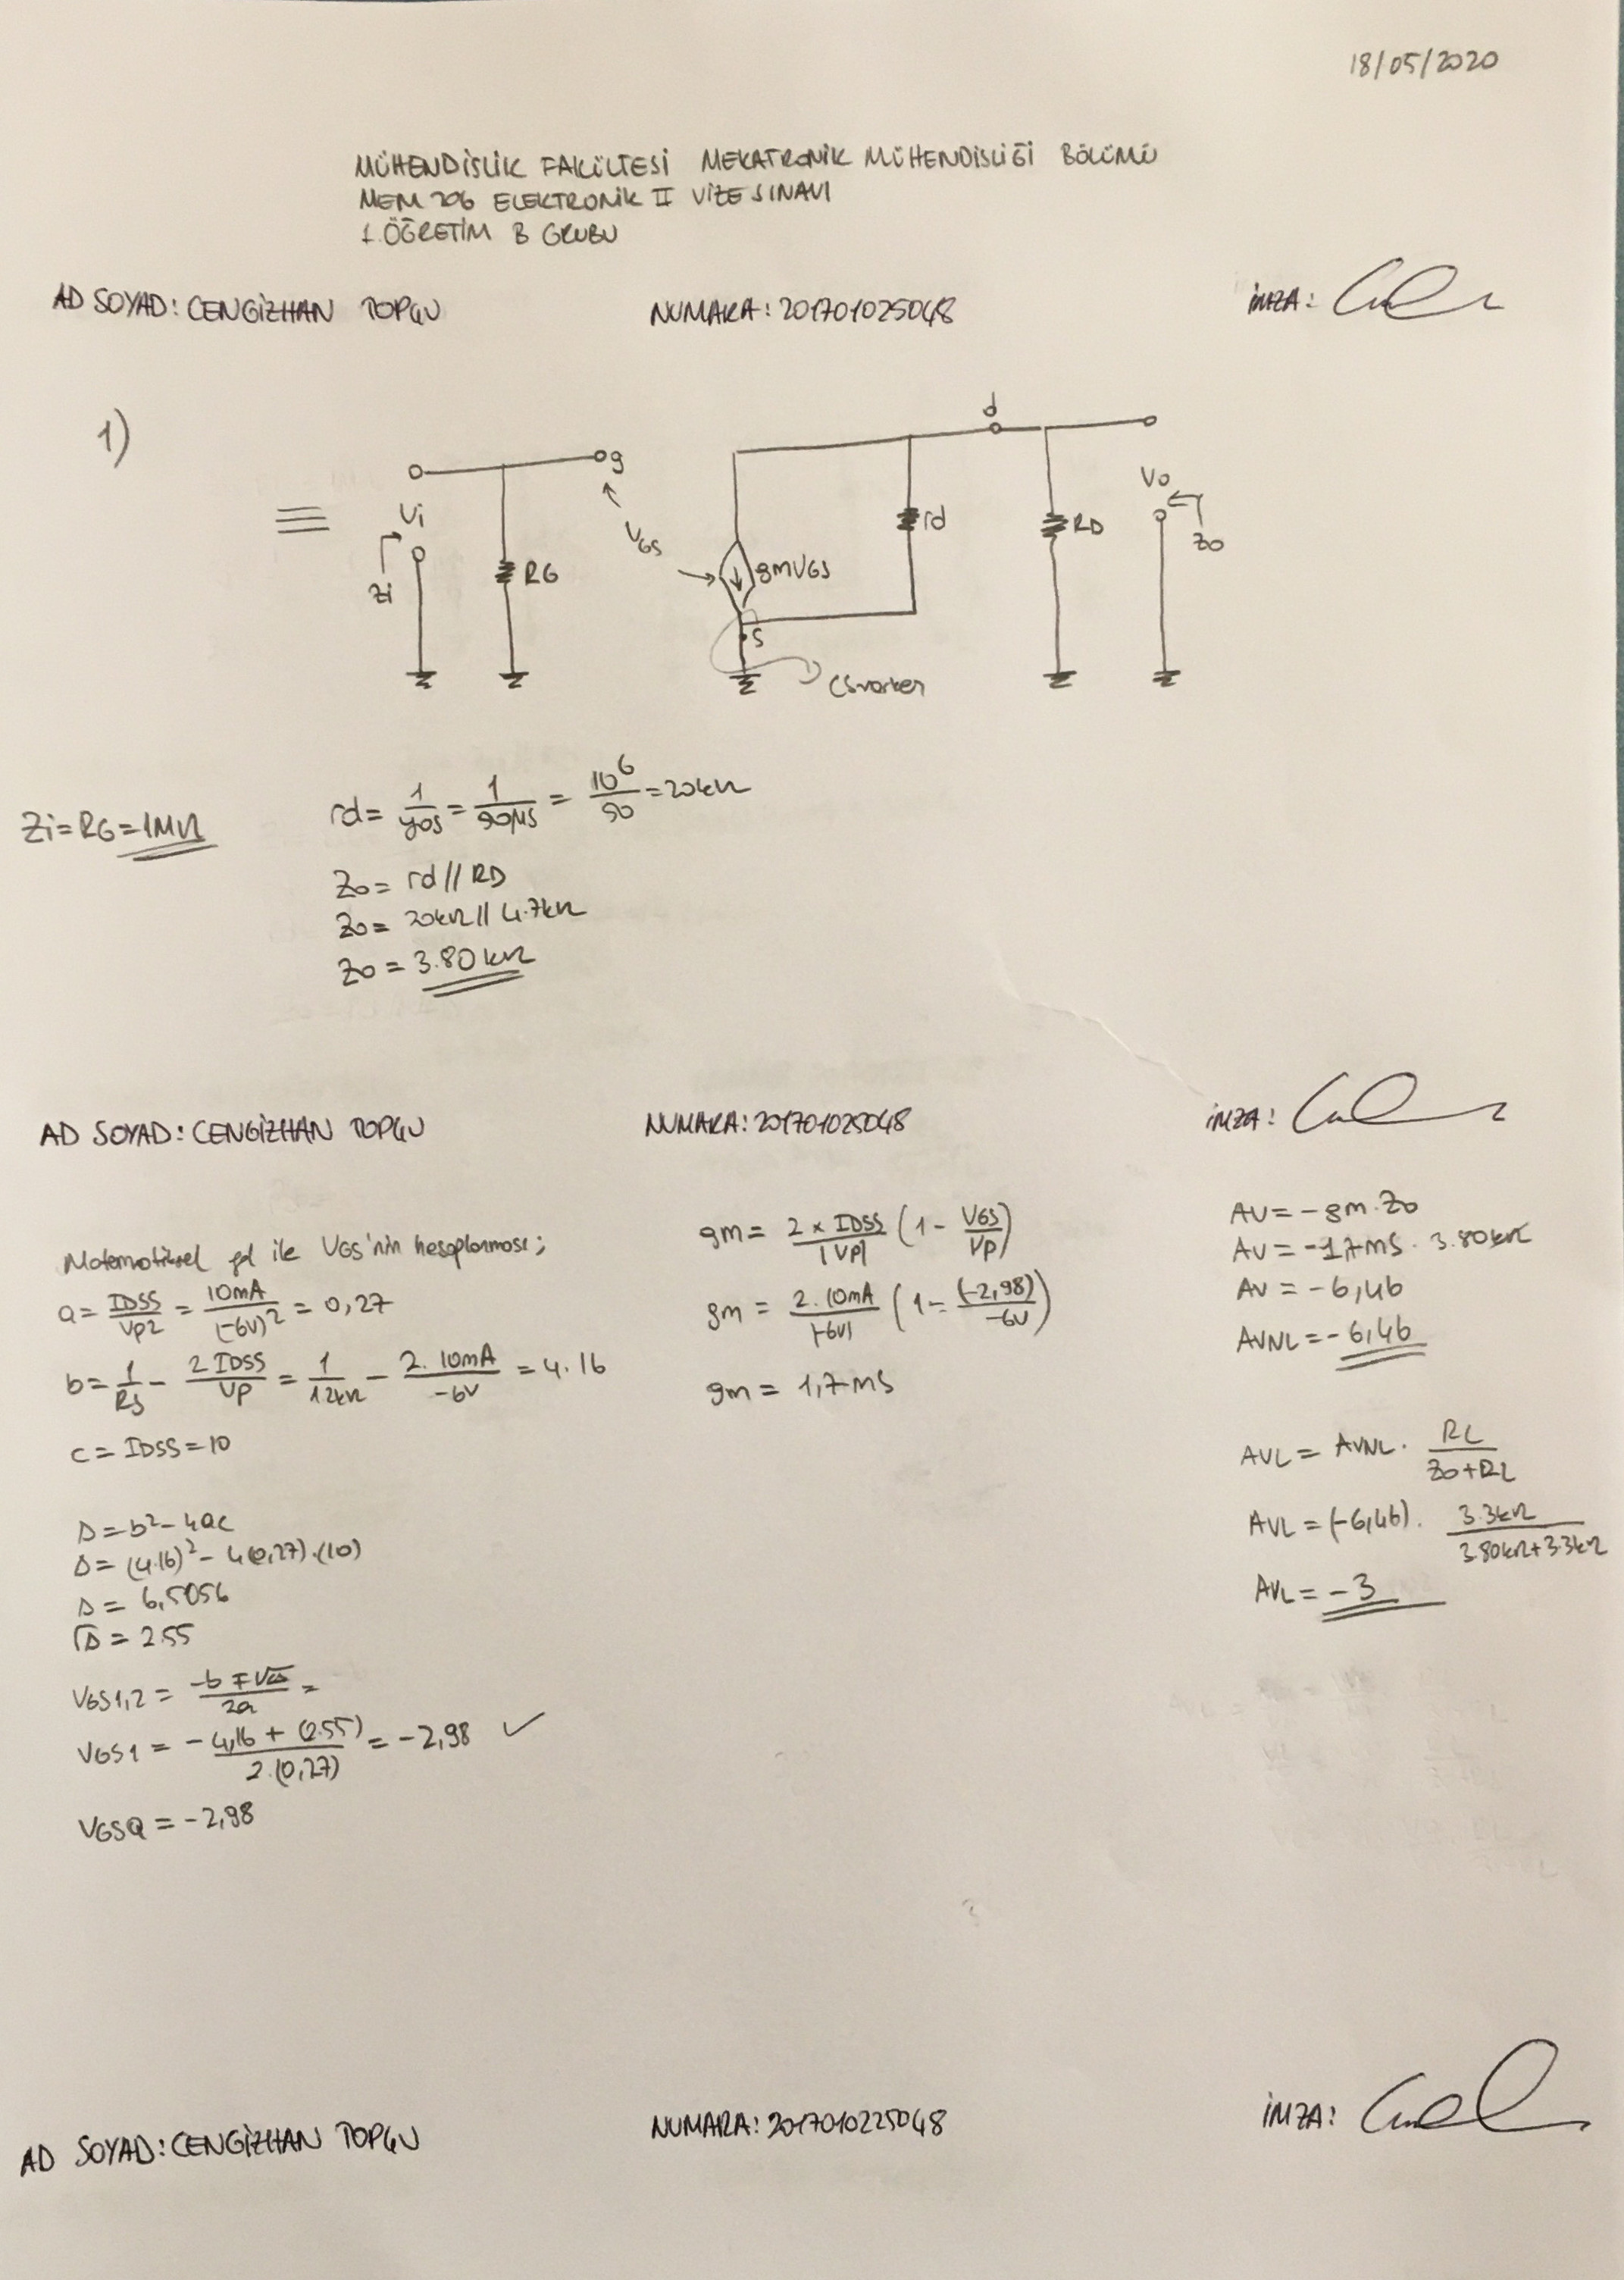 18/05/2020
MÜHENDİSLİK FAKÜLTESİ MEKATRONİK MÜHENDİSLİĞİ BÖLÜMÜ
MEM 206 ELEKTRONİK II VİZE SINAVI
1.ÖĞRETİM B GRUBU
AD SOYAD: CENGİZHAN TOPÇU NUMARA: 201701025048 İMZA:
1)
d
g
Vi
Zi
RG
VGS
gmVGS
rd
RD
Vo
Zo
s
CS varken
Zi = RG = 1MΩ
rd = 1/yos = 1/50µS = 10^6/50 = 20kΩ
Zo = rd // RD
Zo = 20kΩ // 4.7kΩ
Zo = 3.80kΩ
AD SOYAD: CENGİZHAN TOPÇU NUMARA: 201701025048 İMZA:
Matematiksel yol ile VGS'nin hesaplanması;
a = IDSS/VP2 = 10mA/(-6V)^2 = 0,27
b = 1/RS - 2 IDSS/VP = 1/1.2kΩ - 2. 10mA/-6V = 4.16
c = IDSS = 10
Δ = b^2 - 4ac
Δ = (4.16)^2 - 4(0,27).(10)
Δ = 6,5056
√Δ = 2.55
VGS1,2 = -b ∓ √Δ/2a =
VGS1 = -4,16 + (2.55)/2.(0,27) = -2,98 ✓
VGSQ = -2,98
gm = 2 x IDSS/|VP| (1 - VGS/VP)
gm = 2. 10mA/|-6V| (1 - (-2,98)/-6V)
gm = 1,7mS
AV = -gm.Zo
AV = -1,7mS. 3.80kΩ
AV = -6,46
AVNL = -6,46
AVL = AVNL. RL/Zo+RL
AVL = (-6,46). 3.3kΩ/3.80kΩ+3.3kΩ
AVL = -3
AD SOYAD: CENGİZHAN TOPÇU NUMARA: 2017010225048 İMZA: